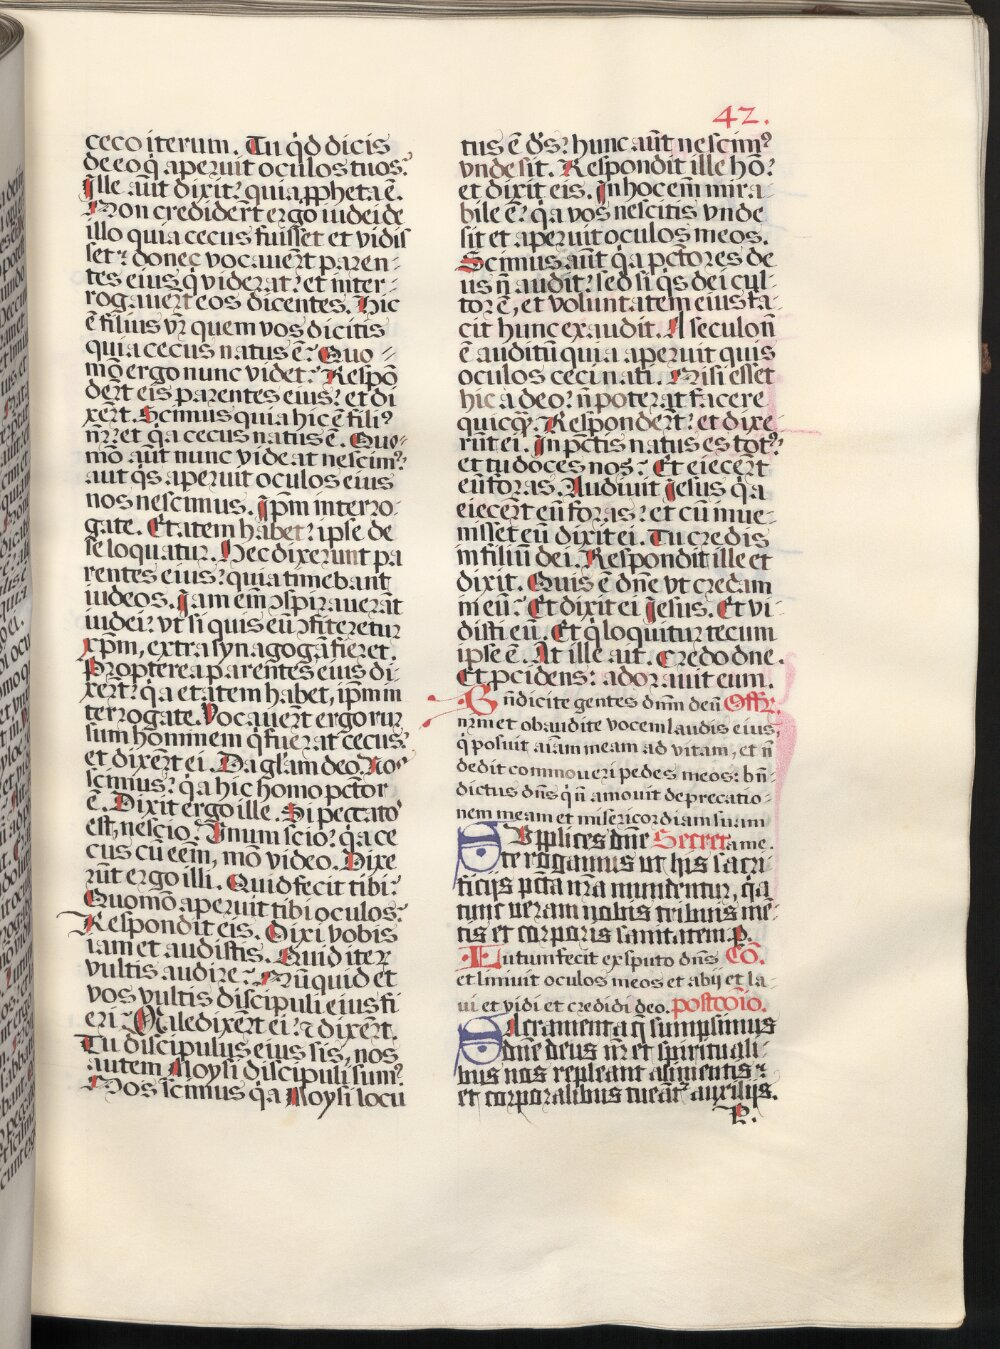 42.
ceco iterum. Tu q̇d dicis
de eo q̇ aperuit oculos tuos?
Ille aūt dixit? quia ꝓpheta ē.
Non credidēr̄t ergo iudei de
illo quia cecus fuisset et vidis
set? donec vocauer̄t paren-
tes eius q̇ viderat? et inter-
rogauer̄t eos dicentes. Hic
ē filius vr̄ quem vos dicitis
quia cecus natus ē? Quo
mō ergo nunc videt? Respō
der̄t eis parentes eius? et di
xer̄t. Scimus quia hic ē fili⁹
nr̄? et q̇a cecus natus ē. Quo-
mō aūt nunc videat nescim⁹?
aut q̇s aperuit oculos eius
nos nescimus. Ip̄m interro-
gate. Etatem habet? ipse de
se loquatur. Hec dixerunt pa
rentes eius? quia timebant
iudeos. Iam em̄ ↄspirauerāt
iudei? vt si quis eū ↄfiteretur
xp̄m, extra synagogā fieret.
Propterea parentes eius di-
xer̄t? q̇a etatem habet, ip̄m in
terrogate. Vocauer̄t ergo rur
sum hominem q̇ fuerat cecus?
et dixer̄t ei. Da gl̄am deo. Nos
scimus? q̇a hic homo pctōr
ē. Dixit ergo ille. Si peccator
est, nescio. Vnum scio? q̇a ce
cus cū eēm, mō video. Dixe
rūt ergo illi. Quid fecit tibi?
Quomō aperuit tibi oculos?
Respondit eis. Dixi vobis
iam et audistis. Quid iteꝝ
vultis audire? Nūquid et
vos vultis discipuli eius fi
eri? Maledixer̄t ei? ⁊ dixer̄t.
Tu discipulus eius sis, nos
autem Moysi discipuli sum⁹.
Nos scimus q̇a Moysi locu
tus ē d̄s? hunc aūt nescim⁹
vnde sit. Respondit ille hō?
et dixit eis. In hoc em̄ mira-
bile ē? q̇a vos nescitis vnde
sit et aperuit oculos meos.
Scimus aūt q̇a pctōres de
us n̄ audit? sed si q̇s dei cul-
tor ē, et voluntatem eius fa-
cit hunc exaudit. A seculo n̄
ē auditū quia aperuit quis
oculos ceci nati. Nisi esset
hic a deo? n̄ poterat facere
quicq̇ꝫ. Responder̄t? et dixe-
rūt ei. In pctīs natus es tot⁹?
et tu doces nos? Et eiecer̄t
eū foras. Audiuit Iesus q̇a
eiecer̄t eū foras? et cū inue-
nisset eū dixit ei. Tu credis
in filiū dei. Respondit ille et
dixit. Quis ē dn̄e vt credam
in eū? Et dixit ei Iesus. Et vi-
disti eū. Et q̇ loquitur tecum
ipse ē. At ille ait. Credo dn̄e.
Et p̄cidens: adorauit eum.
Bn̄dicite gentes dn̄m deū Offꝝ.
nrm et obaudite vocem laudis eius,
q̇ posuit aīam meam ad vitam, et n̄
dedit commoueri pedes meos: bn̄-
dictus dn̄s q̇ n̄ amouit deprecatio-
nem meam et misericordiam suam
Supplices dn̄e Secret a me.
te rogamus ut his sacri-
ficijs pctā nr̄a mundentur, q̇a
tunc ueram nobis tribuis mē-
tis et corporis sanitatem. P.
Lutum fecit ex sputo dn̄s Cō.
et liniuit oculos meos et abij et la-
ui et vidi et credidi deo. postcōio.
Sacramenta q̇ sumpsimus
dn̄e deus nr̄ et spirituali-
bus nos repleant alimentis ⁊
et corporalibus tueāt? auxilijs.
P.